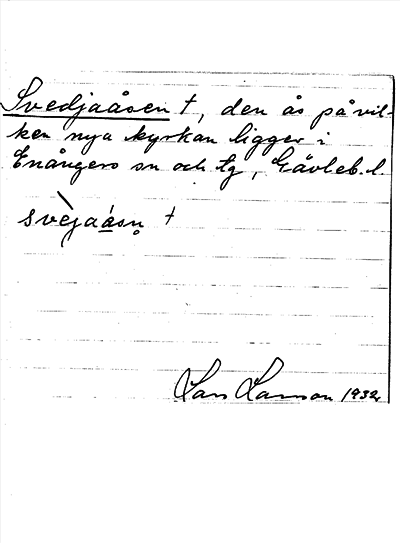 Svedjaåsen †, den ås på vil-
ken nya kyrkan ligger i
Enångers sn och tg, Gävleb. l.
svèjaásn̥ †
Lars Larsson 1932